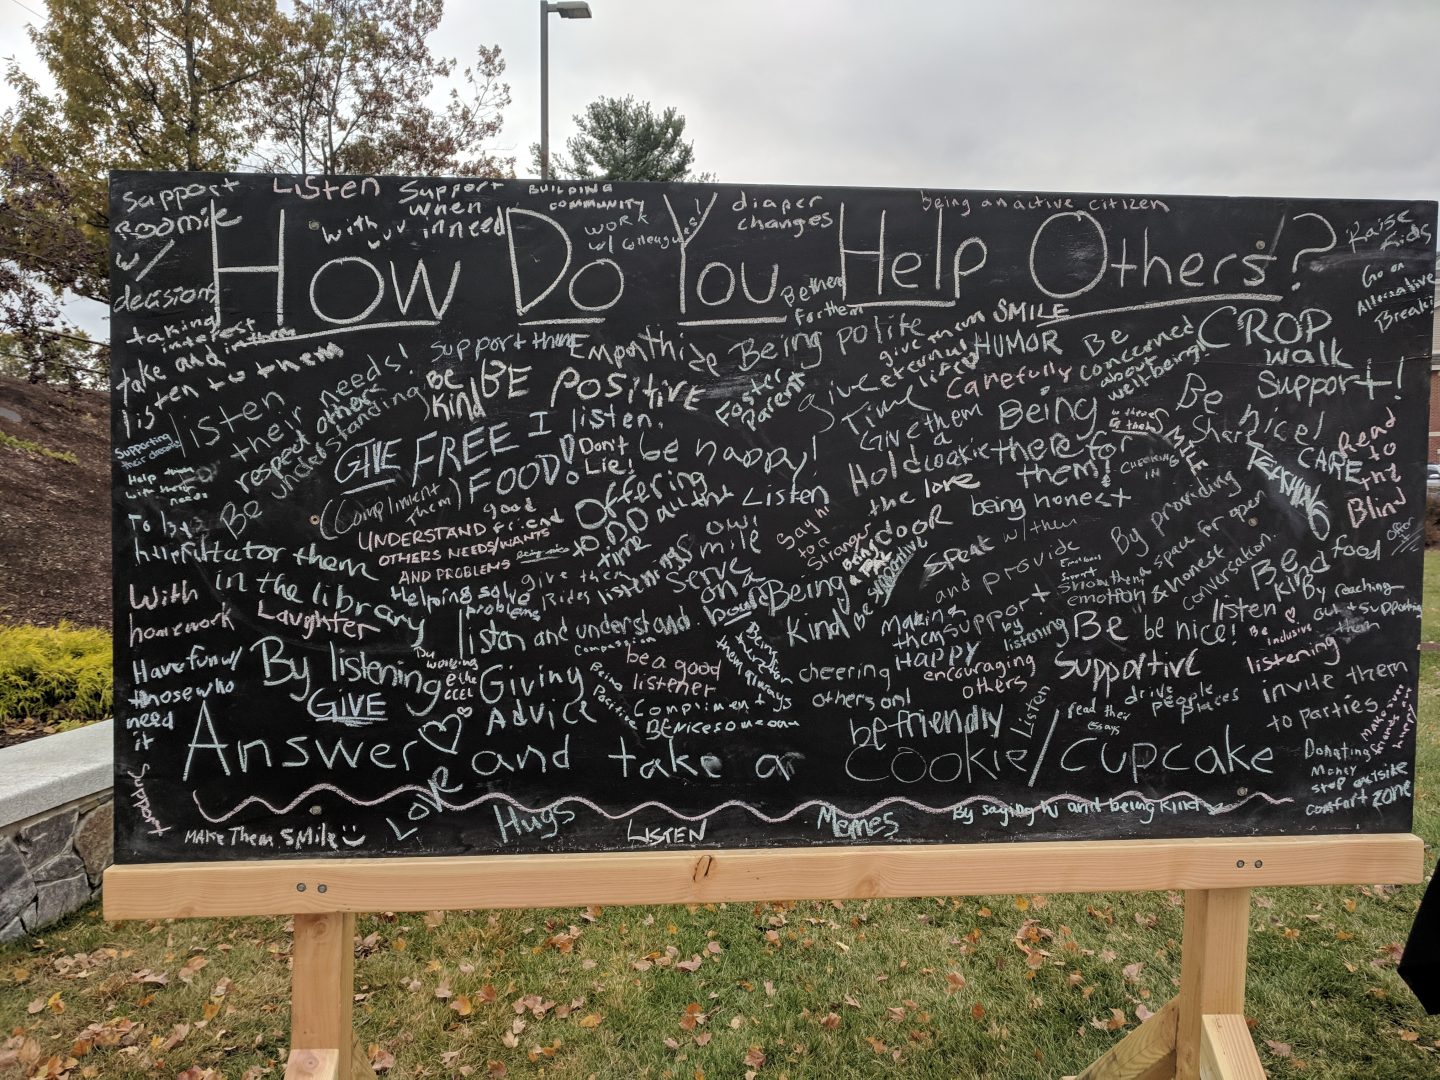 Support
Roomie
w/
decisions
Listen
Support
when
in need
BUILDING
COMMUNITY
work
w/ colleagues!
diaper
changes
being an active citizen
Raise
Kids
Go on
Alternative
Breaks!
How Do You Help Others?
Be there
for them
taking
interest
in them
take and
listen to them
support them
Empathize
Being polite
give
eternal
SMILE
HUMOR
Be
concerned
about
wellbeing!
CROP
walk
Support!
listen
For their needs!
Be respect other
understanding
Be
kind
BE POSITIVE
Foster
Parent
give
Time
Carefully
Be nice!
Share
CARE
Read
to
the
Blind
Supporting
their dreams
Help
with their
needs
GIVE FREE
FOOD!
I listen.
Don't
Lie!
be happy!
Give them
a
cookie
Being
there for
them!
SMILE
CHECKING
IN
(Compliment
Them)
Hold
the love
being honest
Offering
to DO all that
Listen
good
friend
UNDERSTAND
OTHERS NEEDS/WANTS
AND PROBLEMS
time
smile
Say hi
to a
Stranger
DOOR
Being
a PAL
Be supportive
Speak with them
and provide
Emotional
Support
By providing
a space for open
& honest
conversation.
Show them
emotion
Be
kind
food
offer
them
in the library
With
homework
Laughter
Helping solve
problems
give them
Rides
listenings
Serve
on a
board
Being
Kind
Making
them
HAPPY
support
by
listening
Be be nice!
listen
By reaching
out + supporting
them
Be
inclusive
listening
Have fun w/
those who
need
it
By listening
By
working
@ the
CCEL
listen and understand
Compassion
be a good
listener
Giving
Advice
Being
Positive
Compliments
BE nice someone
always
cheering
others on!
encouraging
others
Supportive
invite them
to parties
Make sure
friends
happy
GIVE
be friendly
Listen
read their
essays
drive
people
places
Answer and take a Cookie/Cupcake
Donating
Money
step outside
comfort zone
Love
Hugs
LISTEN
Memes
By saying hi and being kind
MAKE Them SMILE